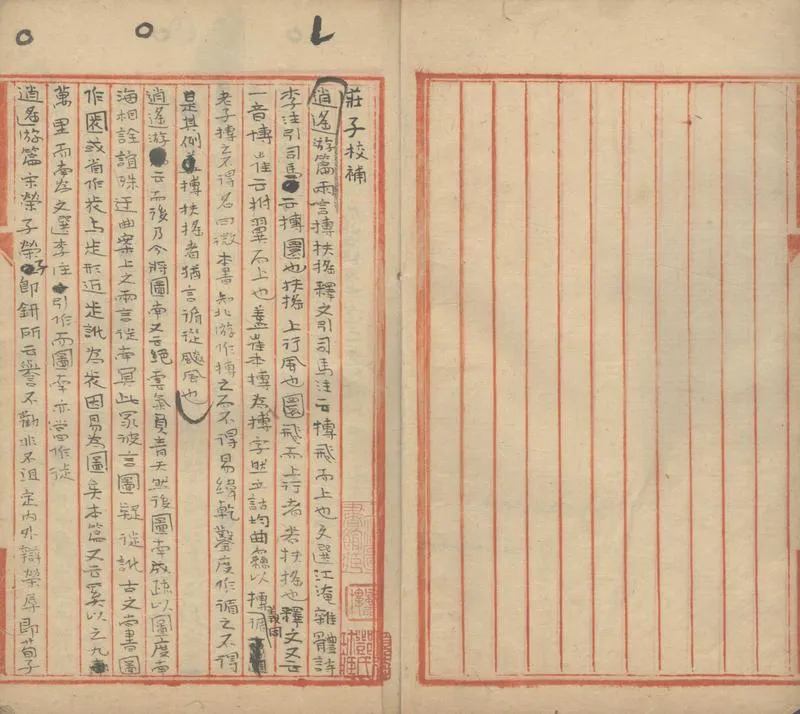 莊子校補
逍遙游篇兩言摶扶搖釋文引司馬注云摶飛而上也文選江淹雜體詩
李注引司馬云摶圜也扶搖上行風也圜飛而上行者若扶搖也釋文又云
一音博崔云拊翼而上也蓋崔本摶為搏字然立詁均曲竊以摶循義同
老子摶之不得名曰微本書知北游作摶之而不得易緯乾鑿度作循之不得
是其例摶扶搖者猶言循從飈風也
逍遙游云而後乃今將圖南又云絕雲氣負青天然後圖南成疏以圖度南
海相詮誼殊迂曲案上文兩言從南冥此冢彼言圖疑從訛古文啚書圖
作圂或省作㘝上辵形近辵訛為㘝因易為圖矣本篇又云奚以之九
萬里而南為文選李注引作而圖南亦當作徒
逍遙游篇宋榮子榮子即鈃所云譽不勸非不沮定內外辯榮辱即荀子